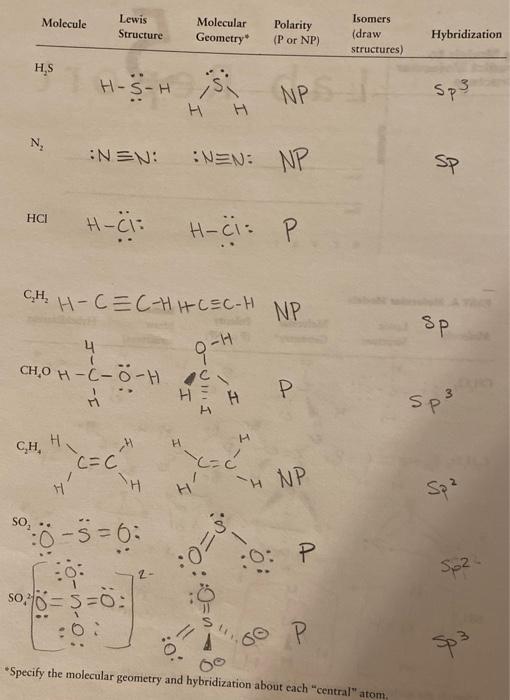 Molecule Lewis Structure Molecular Geometry* Polarity (P or NP) Isomers (draw structures) Hybridization
H₂S H-S-H S H H NP Sp³
N₂ :N≡N: :N≡N: NP Sp
HCl H-Cl: H-Cl: P
C₂H₂ H-C≡C-H H-C≡C-H NP Sp
CH₄O H-C-O-H H H O-H C H H H P Sp³
C₂H₄ H H C=C H H H H C=C H H NP Sp²
SO₂ :O-S=O: S :O :O: P Sp²
SO₄²⁻ [:O: O=S=O: :O:]2- :O = S O O⊖ O⊖ P Sp³
*Specify the molecular geometry and hybridization about each "central" atom.